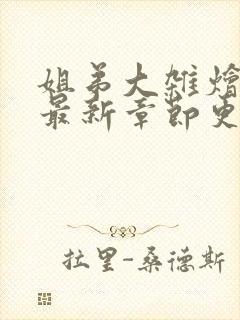 姐弟大雑燴
最新章節史
拉里-桑德斯